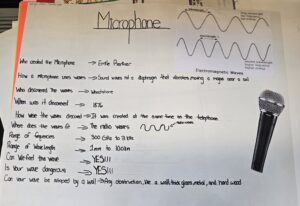 Microphone
Electromagnetic Waves
Who created the Microphone → Emile Berliner
How a microphone uses waves → Sound waves hit a diaphragm that vibrates, moving a magnet near a coil
Who discovered the waves → Wheatstone
When was it discovered → 1876
How were the waves discovered → It was created at the same time as the telephone
Where does the waves fit → The radio waves
Range of frequencies → 300
Range of Wavelength → 1 mm to 100km
Can we feel the wave → YES!!!
Is your wave dangerous → YES!!!
Can your wave be stopped by a wall → Any obstruction, like a wall, thick glass, metal, and hard wood